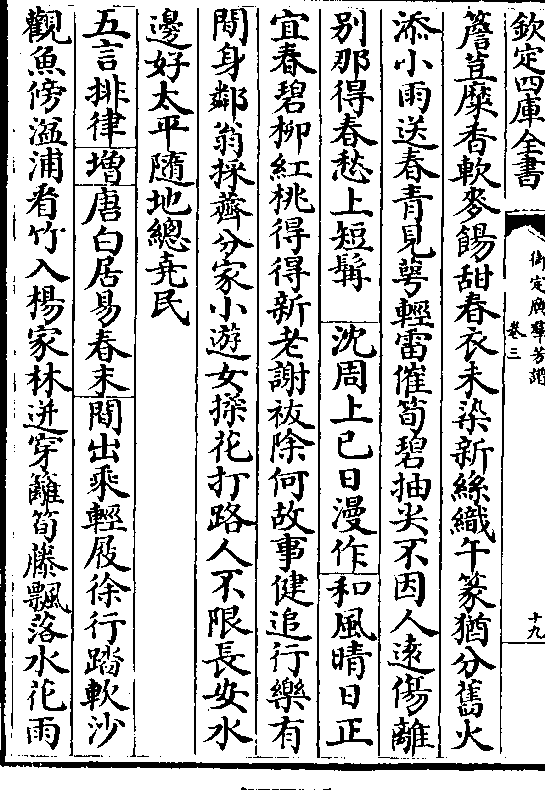 欽定四庫全書
御定佩文齋廣羣芳譜
卷三
十九
簷荳縻杏軟麥餳甜春衣未染新絲織午篆猶分舊火
添小雨送春青見萼輕雷催筍碧抽尖不因人遠傷離
別那得春愁上短髯 沈周上巳日漫作和風晴日正
宜春碧柳紅桃得得新老謝祓除何故事健追行樂有
閒身鄰翁採薺分家小遊女採花打路人不限長安水
邊好太平隨地總堯民
五言排律增唐白居易春末閒出乘輕屐徐行踏軟沙
觀魚傍湓浦看竹入楊家林迸穿籬筍藤飄落水花雨